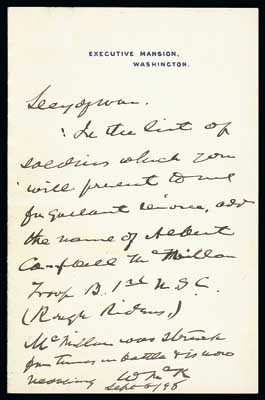 EXECUTIVE MANSION,
WASHINGTON.
Secy of War.
In the list of
soldiers which you
will present to me
for gallant service, add
the name of Albert
Campbell McMillan
Troop B. 1st U.S.C.
(Rough Riders,)
McMillan was struck
four times in battle & is now
recovering W McK
Sept 2/98